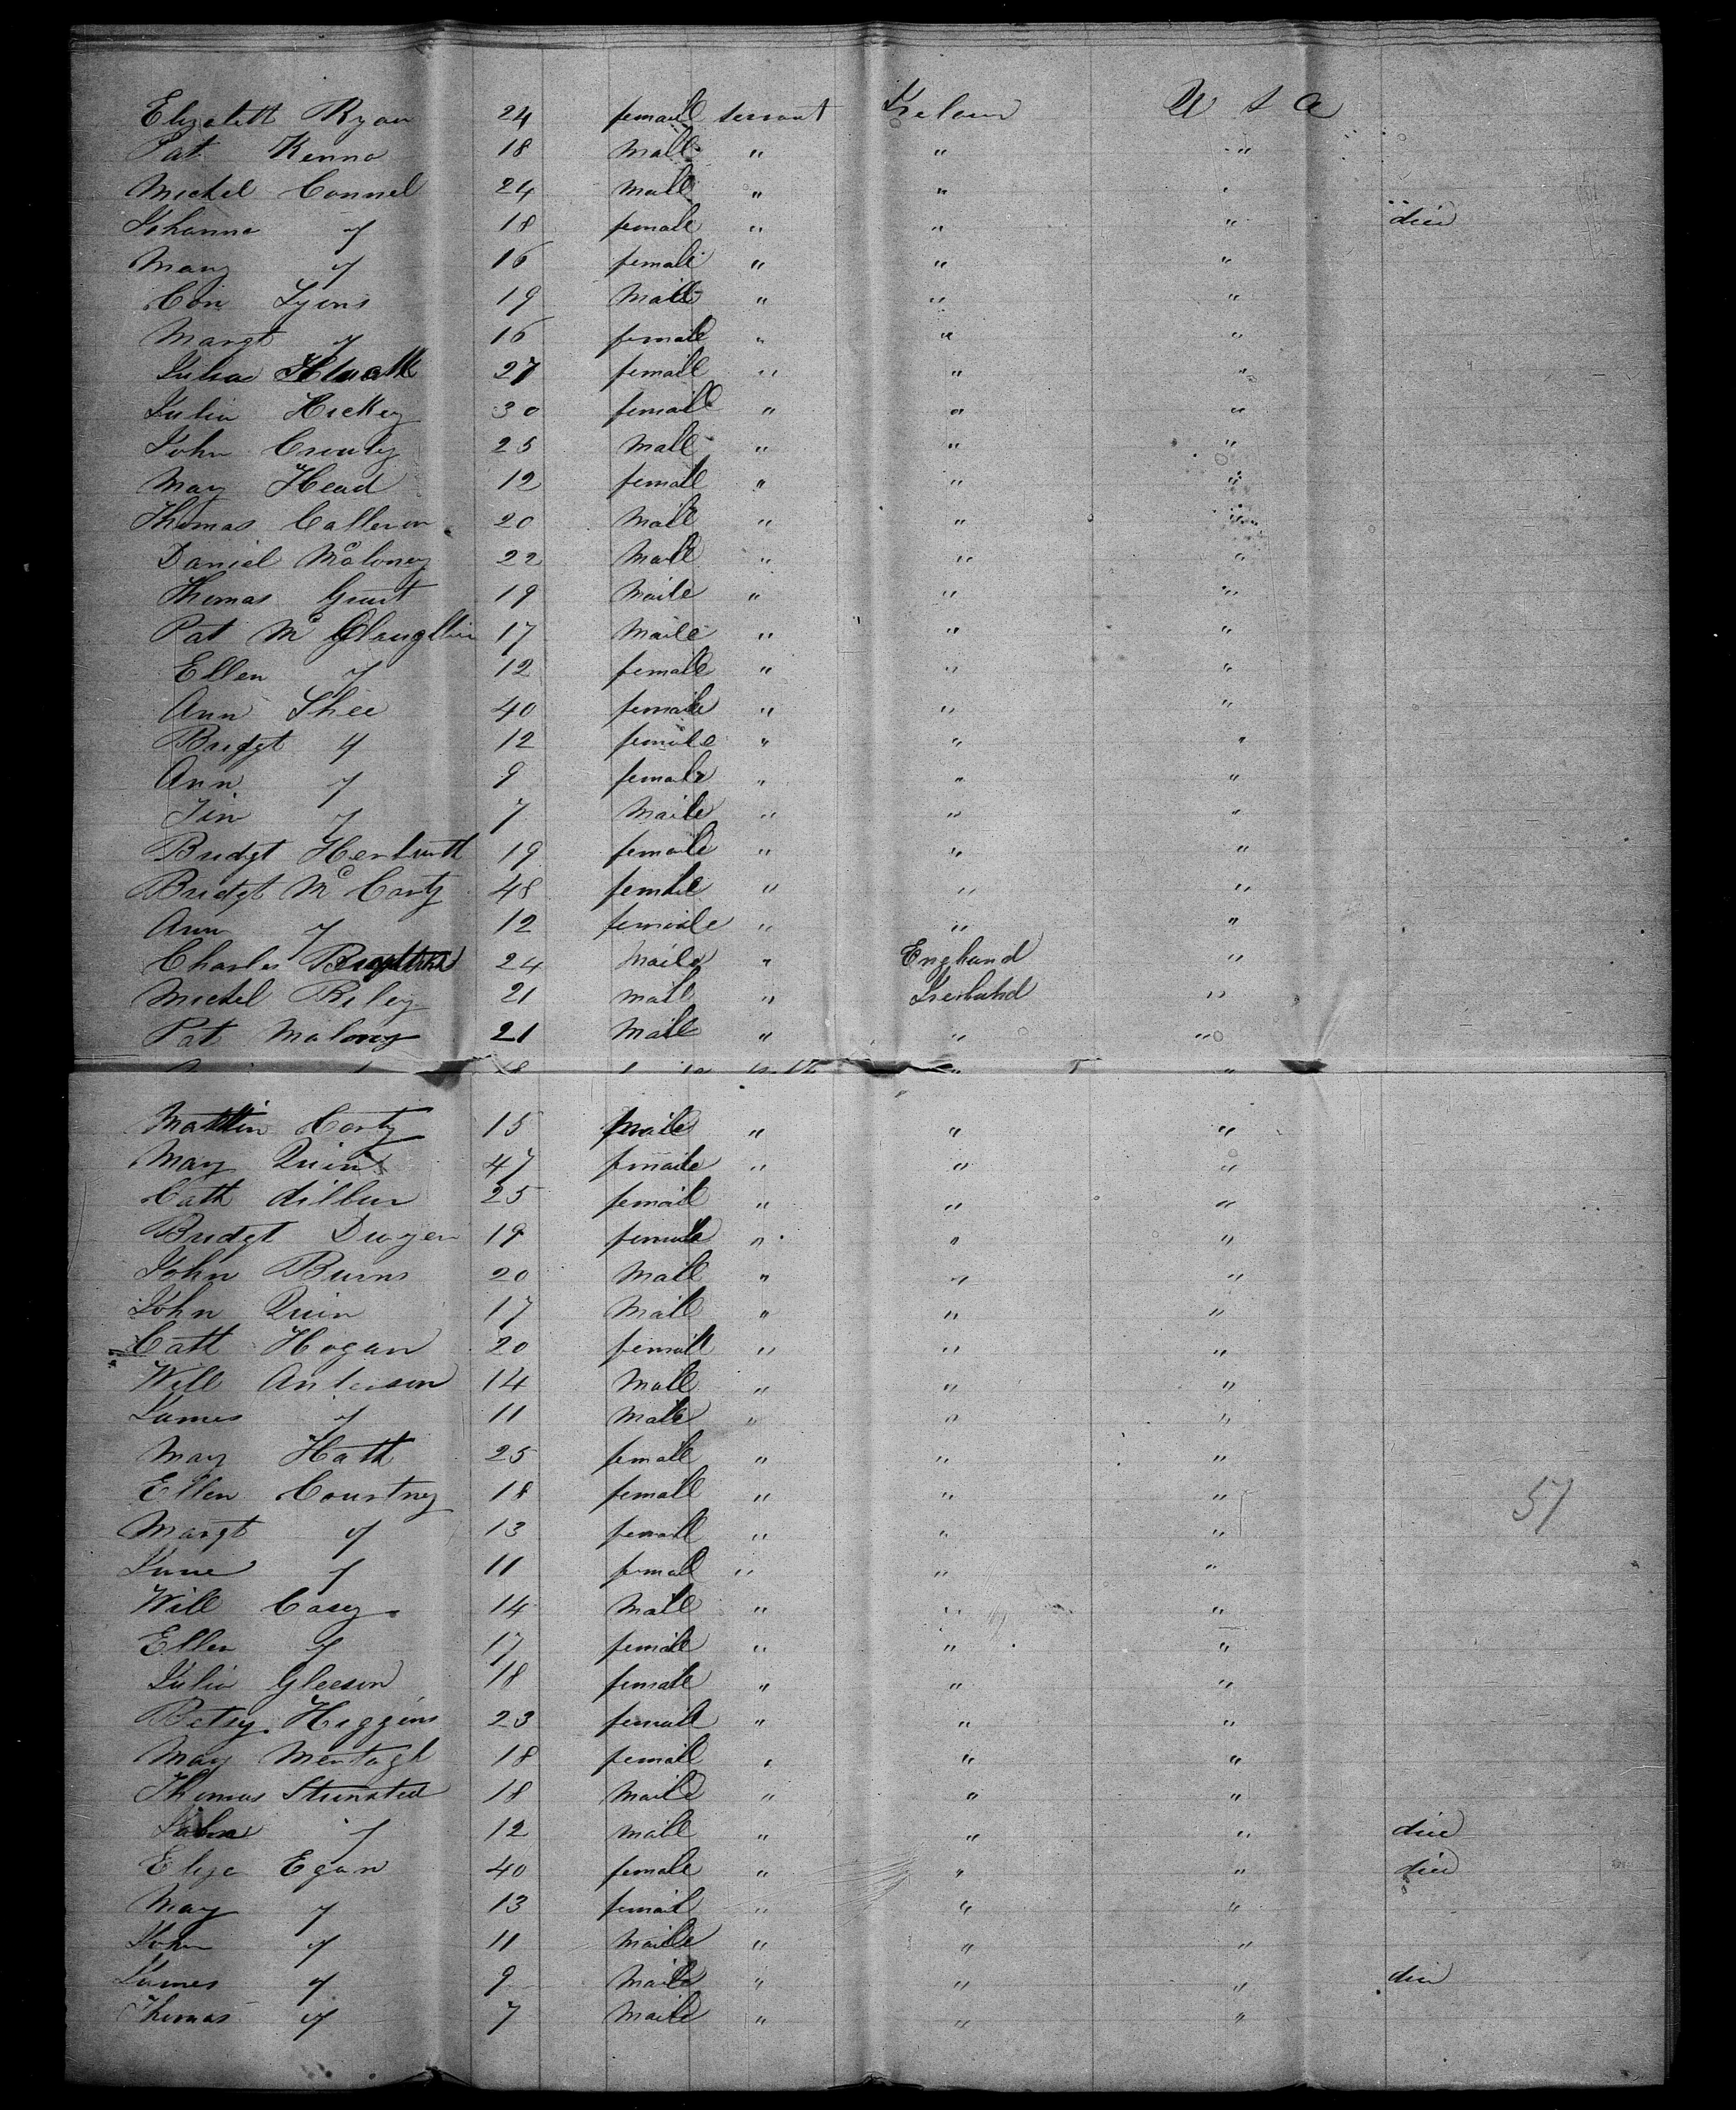 Elizabett Ryan 24 femaile servant Irelan U S A
Pat Kenna 18 Maile " " "
Mickel Connel 24 Maile " " "
Johanna " 18 female " " " died
Mary " 16 female " " "
Con Lyons 19 Maile " " "
Margt " 16 female " " "
Julia 27 femaile " " "
Julia Hickey 30 femaile " " "
John Crouly 25 Maile " " "
Mary Head 12 female " " "
Thomas 20 Maile " " "
Daniel Maloney 22 Maile " " "
Thomas Grant 19 Maile " " "
Pat Mc 17 Maile " " "
Ellen " 12 female " " "
Ann Shee 40 female " " "
Bridgt " 12 female " " "
Ann " 9 female " " "
" 7 Maile " " "
Bridgt 19 female " " "
Bridgt Mc Carty 48 female " " "
Ann " 12 female " " "
Charles 24 Maile " England "
Mickel Riley 21 Maile " Ireland "
Pat Malony 21 Maile " " "
18 " "
Mattin Carty 15 Maile " " "
Mary Quin 47 femaile " " "
Cath 25 femaile " " "
Bridgt 19 female " " "
John Burns 20 Maile " " "
John Quin 17 Maile " " "
Catt Hogan 20 femaile " " "
Will Anderson 14 Maile " " "
James " 11 Maile " " "
Mary Hath 25 female " " "
Ellen Courtney 18 female " " "
51
Margt " 13 female " " "
Jane " 11 female " " "
Will Casey 14 Maile " " "
Ellen " 17 female " " "
Julia Gleeson 18 female " " "
Betsy Higgins 23 female " " "
Mary Mentagh 18 female " " "
Thomas 18 Maile " " "
" 12 Maile " " " died
Eliza Egan 40 female " " " died
Mary " 13 female " " "
John " 11 Maile " " "
James " 9 Maile " " " died
Thomas " 7 Maile " " "